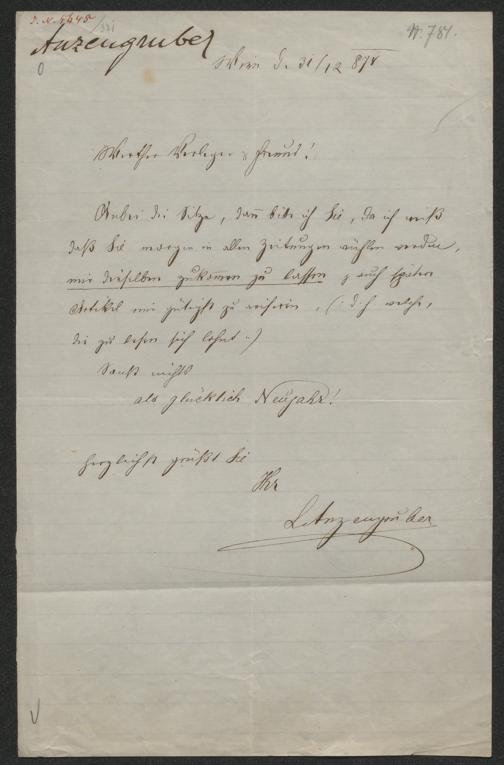 J. N. 5645/321
N. 781.
Anzengruber
Wien d. 31/12 87
Werther Verleger & Freund!
Anbei die Sitze, dann bitte ich Sie, da ich weiß
daß Sie morgen in allen Zeitungen wühlen werden,
mir dieselben zukommen zu lassen & auch spätere
Artikel mir gütigst zu , (: d. h. welche,
die zu lesen sich lohnt :)
Sonst nichts
als glücklich Neujahr!
herzlichst grüßt Sie
Ihr
L. Anzengruber